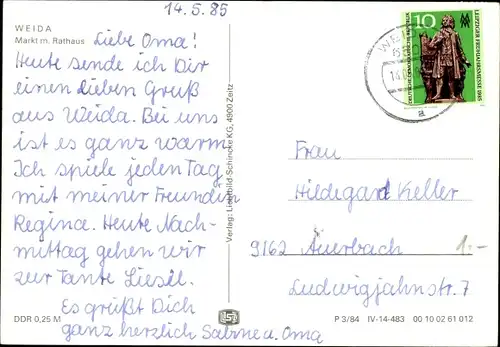 14.5.85
WEIDA
Markt m. Rathaus
Liebe Oma!
Heute sende ich Dir
einen lieben Gruß
aus Weida. Bei uns
ist es ganz warm.
Ich spiele jeden Tag
mit meiner Freundin
Regina. Heute Nach-
mittag gehen wir
zur Tante Liesel.
Es grüßt Dich
ganz herzlich Sabine u. Oma
DDR 0,25 M
Verlag: Lichtbild-Schincke KG, 4900 Zeitz
10
LEIPZIGER FRÜHJAHRSMESSE 1985
DEUTSCHE DEMOKRATISCHE REPUBLIK
WEI
a
Frau
Hildegard Keller
9162 Auerbach
1.-
Ludwigjahnstr. 7
P 3/84 IV-14-483 00 10 02 61 012